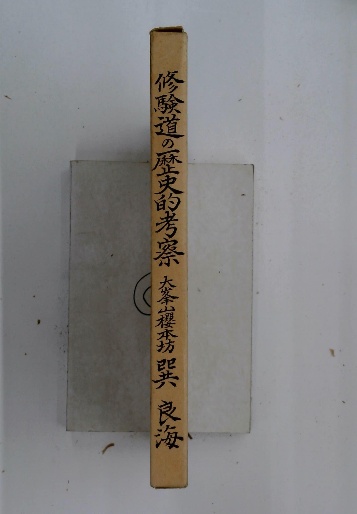 修験道の歴史的考察 大峯山櫻本坊 巽 良海